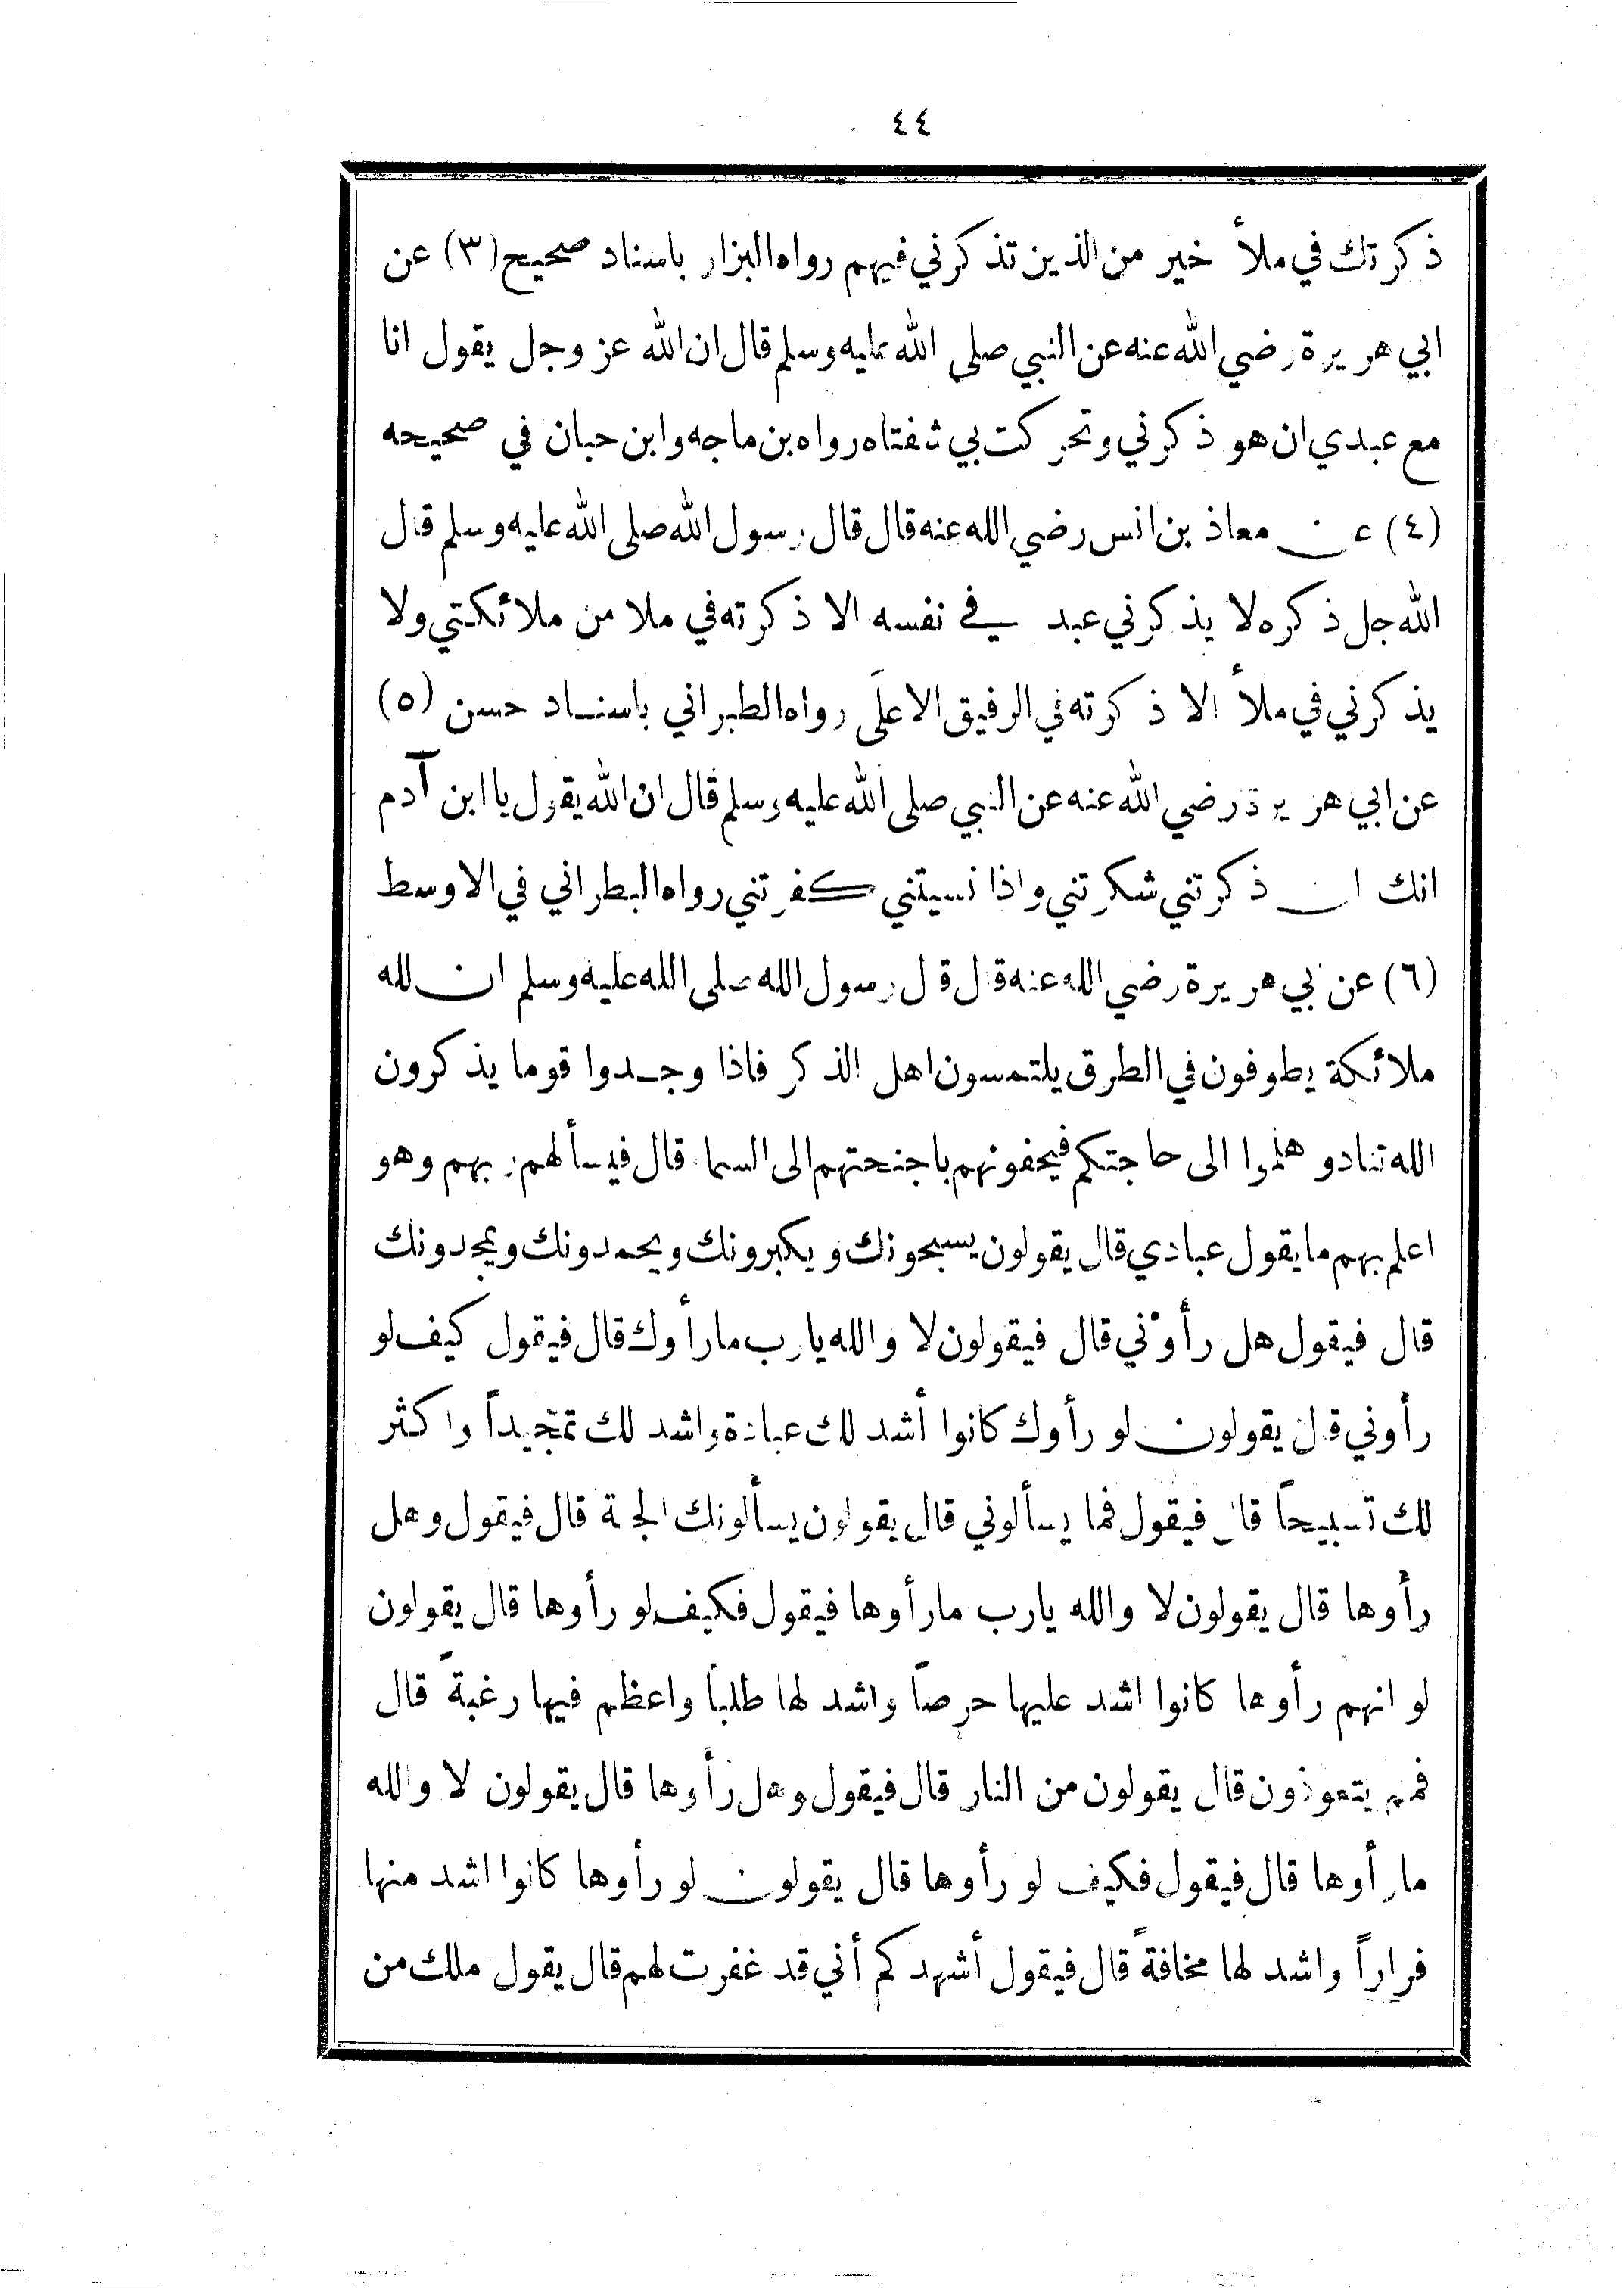 ٤٤
ذكرتك في ملأ خير من الذين تذكرني فيهم رواه البزار باسناد صحيح (٣) عن
ابي هريرة رضي الله عنه عن النبي صلى الله عليه وسلم قال ان الله عز وجل يقول انا
مع عبدي ان هو ذكرني وتحركت بي شفتاه رواه بن ماجه وابن حبان في صحيحه
(٤) عن معاذ بن انس رضي الله عنه قال قال رسول الله صلى الله عليه وسلم قال
الله جل ذكره لا يذكرني عبد في نفسه الا ذكرته في ملا من ملائكتي ولا
يذكرني في ملأ الا ذكرته في الرفيق الاعلى رواه الطبراني باسناد حسن (٥)
عن ابي هريرة رضي الله عنه عن النبي صلى الله عليه وسلم قال ان الله يقول يا ابن آدم
انك ان ذكرتني شكرتني واذا نسيتني كفرتني رواه البطراني في الاوسط
(٦) عن ابي هريرة رضي الله عنه قال قال رسول الله صلى الله عليه وسلم ان لله
ملائكة يطوفون في الطرق يلتمسون اهل الذكر فاذا وجدوا قوما يذكرون
الله تنادو هلموا الى حاجتكم فيحفونهم باجنحتهم الى السماء قال فيسألهم ربهم وهو
اعلم بهم ما يقول عبادي قال يقولون يسبحونك ويكبرونك ويحمدونك ويمجدونك
قال فيقول هل رأوني قال فيقولون لا والله يارب ما رأوك قال فيقول كيف لو
رأوني قال يقولون لو رأوك كانوا أشد لك عبادة واشد لك تمجيداً واكثر
لك تسبيحاً قال فيقول فما يسألوني قال يقولون يسألونك الجنة قال فيقول وهل
رأوها قال يقولون لا والله يارب ما رأوها فيقول فكيف لو رأوها قال يقولون
لو انهم رأوها كانوا اشد عليها حرصاً واشد لها طلباً واعظم فيها رغبةً قال
فمم يتعوذون قال يقولون من النار قال فيقول وهل رأوها قال يقولون لا والله
ما رأوها قال فيقول فكيف لو رأوها قال يقولون لو رأوها كانوا اشد منها
فراراً واشد لها مخافةً قال فيقول أشهدكم أني قد غفرت لهم قال يقول ملك من